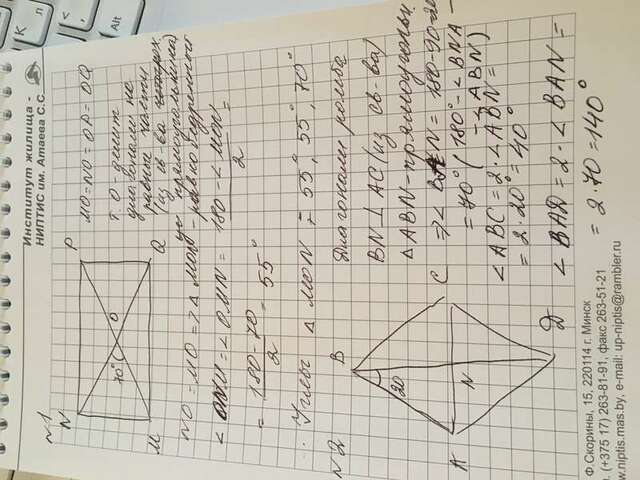 Институт жилища -
НИПТИС им. Атаева С.С.
К
Л
<
,
Alt
№1
N
P
70°
O
M
Q
MO=NO=OP=OQ
т. O - делит
диагонали на
равные части
(из св-ва
прямоугольника)
NO = MO => △ MON - равнобедренный
∠ ONM = ∠ OMN = 180 - ∠ MON / 2 =
= 180-70 / 2 = 55°
Углы △ MON = 55°, 55°, 70°
№2
B
20
A
N
C
D
Диагонали ромба
BN ⊥ AC (из св-ва)
△ ABN - прямоугольн.
=> ∠ BAN = 180-90-20
= 70° (180° - ∠ BNA -
- ∠ ABN)
∠ ABC = 2 · ∠ ABN =
= 2 · 20° = 40°
∠ BAD = 2 · ∠ BAN =
= 2 · 70 = 140°
Ф.Скорины, 15, 220114 г. Минск
. (+375 17) 263-81-91, факс 263-51-21
w.niptis.mas.by, e-mail: up-niptis@rambler.ru